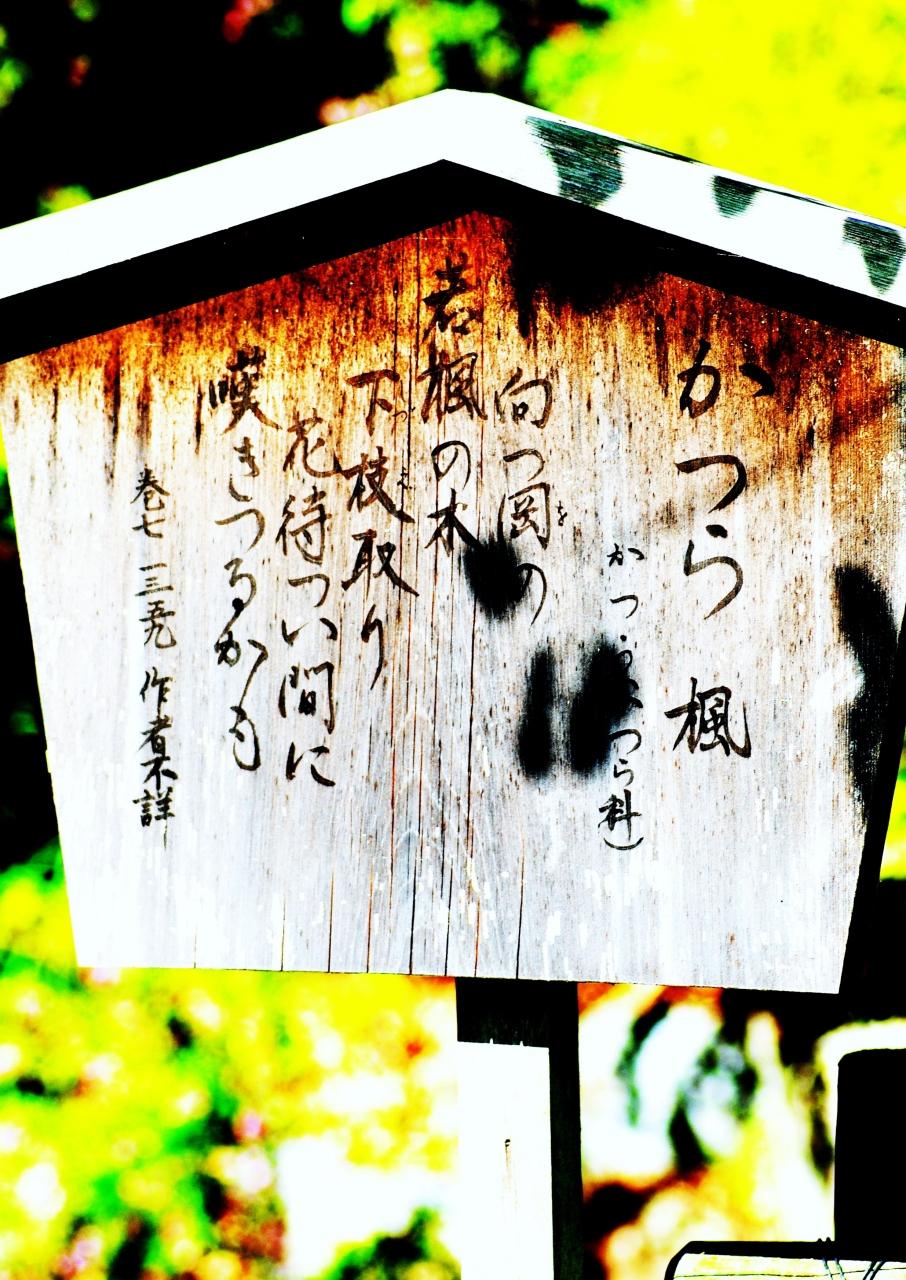 かつら 楓
つら科)
向つ岡の
を
若楓の木
下枝取り
づえ
花待つい間に
嘆きつるかも
巻七 一三五九 作者不詳